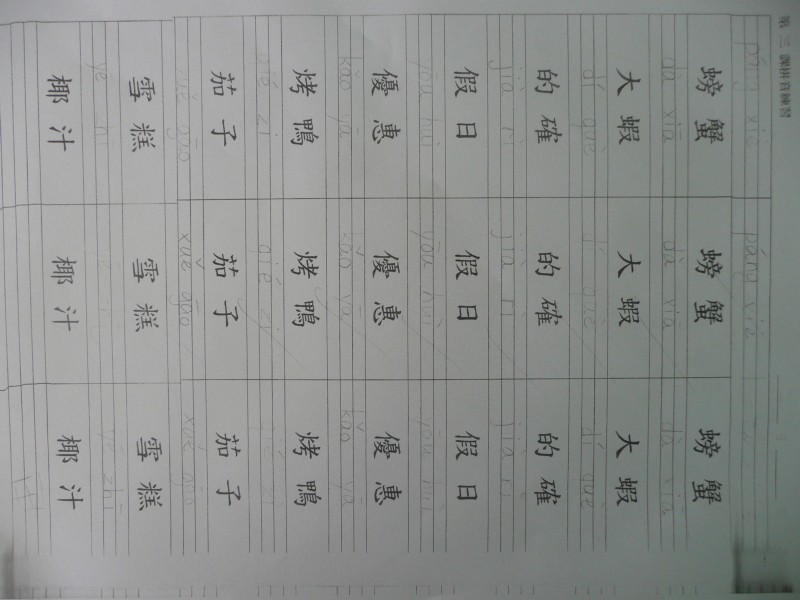 第三課拼音練習
páng xiè páng xiè
螃蟹 螃蟹 螃蟹
dà xiā dà xiā dà xiā
大蝦 大蝦 大蝦
dí què dí què dí què
的確 的確 的確
jià rì jià rì jià rì
假日 假日 假日
yōu huì yōu huì yōu huì
優惠 優惠 優惠
kǎo yā kǎo yā kǎo yā
烤鴨 烤鴨 烤鴨
qié zi qié zi
茄子 茄子 茄子
xuě gāo xuě gāo xuě gāo
雪糕 雪糕 雪糕
zhī
椰汁 椰汁 椰汁